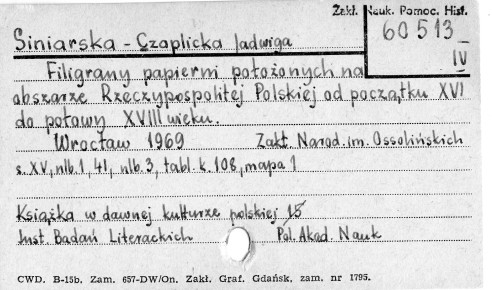 Zakł. Nauk. Pomoc. Hist.
60513
IV
Siniarska-Czaplicka Jadwiga
Filigrany papierni położonych na
obszarze Rzeczypospolitej Polskiej od początku XVI
do połowy XVIII wieku.
Wrocław 1969 Zakł. Narod. im. Ossolińskich
s. XV, nlb. 1, 41, nlb. 3, tabl. k. 108, mapa 1
Książka w dawnej kulturze polskiej 15
Inst. Badań Literackich Pol. Akad. Nauk
CWD. B-15b. Zam. 657-DW/On. Zakł. Graf. Gdańsk, zam. nr 1795.